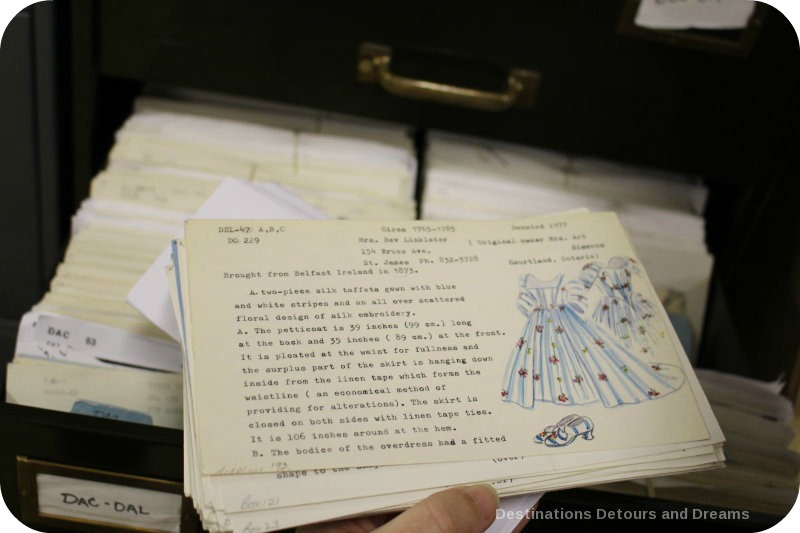 DEL-47 A,B,C Circa 1765-1785 Donated 1977
DO 229 Mrs. Bev Linklater ( Original owner Mrs. Art
154 Bruce Ave. Simmons
St. James Ph. 832-3728 Courtland, Ontario)
Brought from Belfast Ireland in 1873.
A two-piece silk taffeta gown with blue
and white stripes and an all over scattered
floral design of silk embroidery.
A. The petticoat is 39 inches (99 cm.) long
at the back and 35 inches ( 89 cm.) at the front.
It is pleated at the waist for fullness and
the surplus part of the skirt is hanging down
inside from the linen tape which forms the
waistline ( an economical method of
providing for alterations). The skirt is
closed on both sides with linen tape ties.
It is 106 inches around at the hem.
B. The bodice of the overdress had a fitted
shape to the (over)
Box 121
Box 23
DAC 53
DAC-DAL
Destinations Detours and Dreams